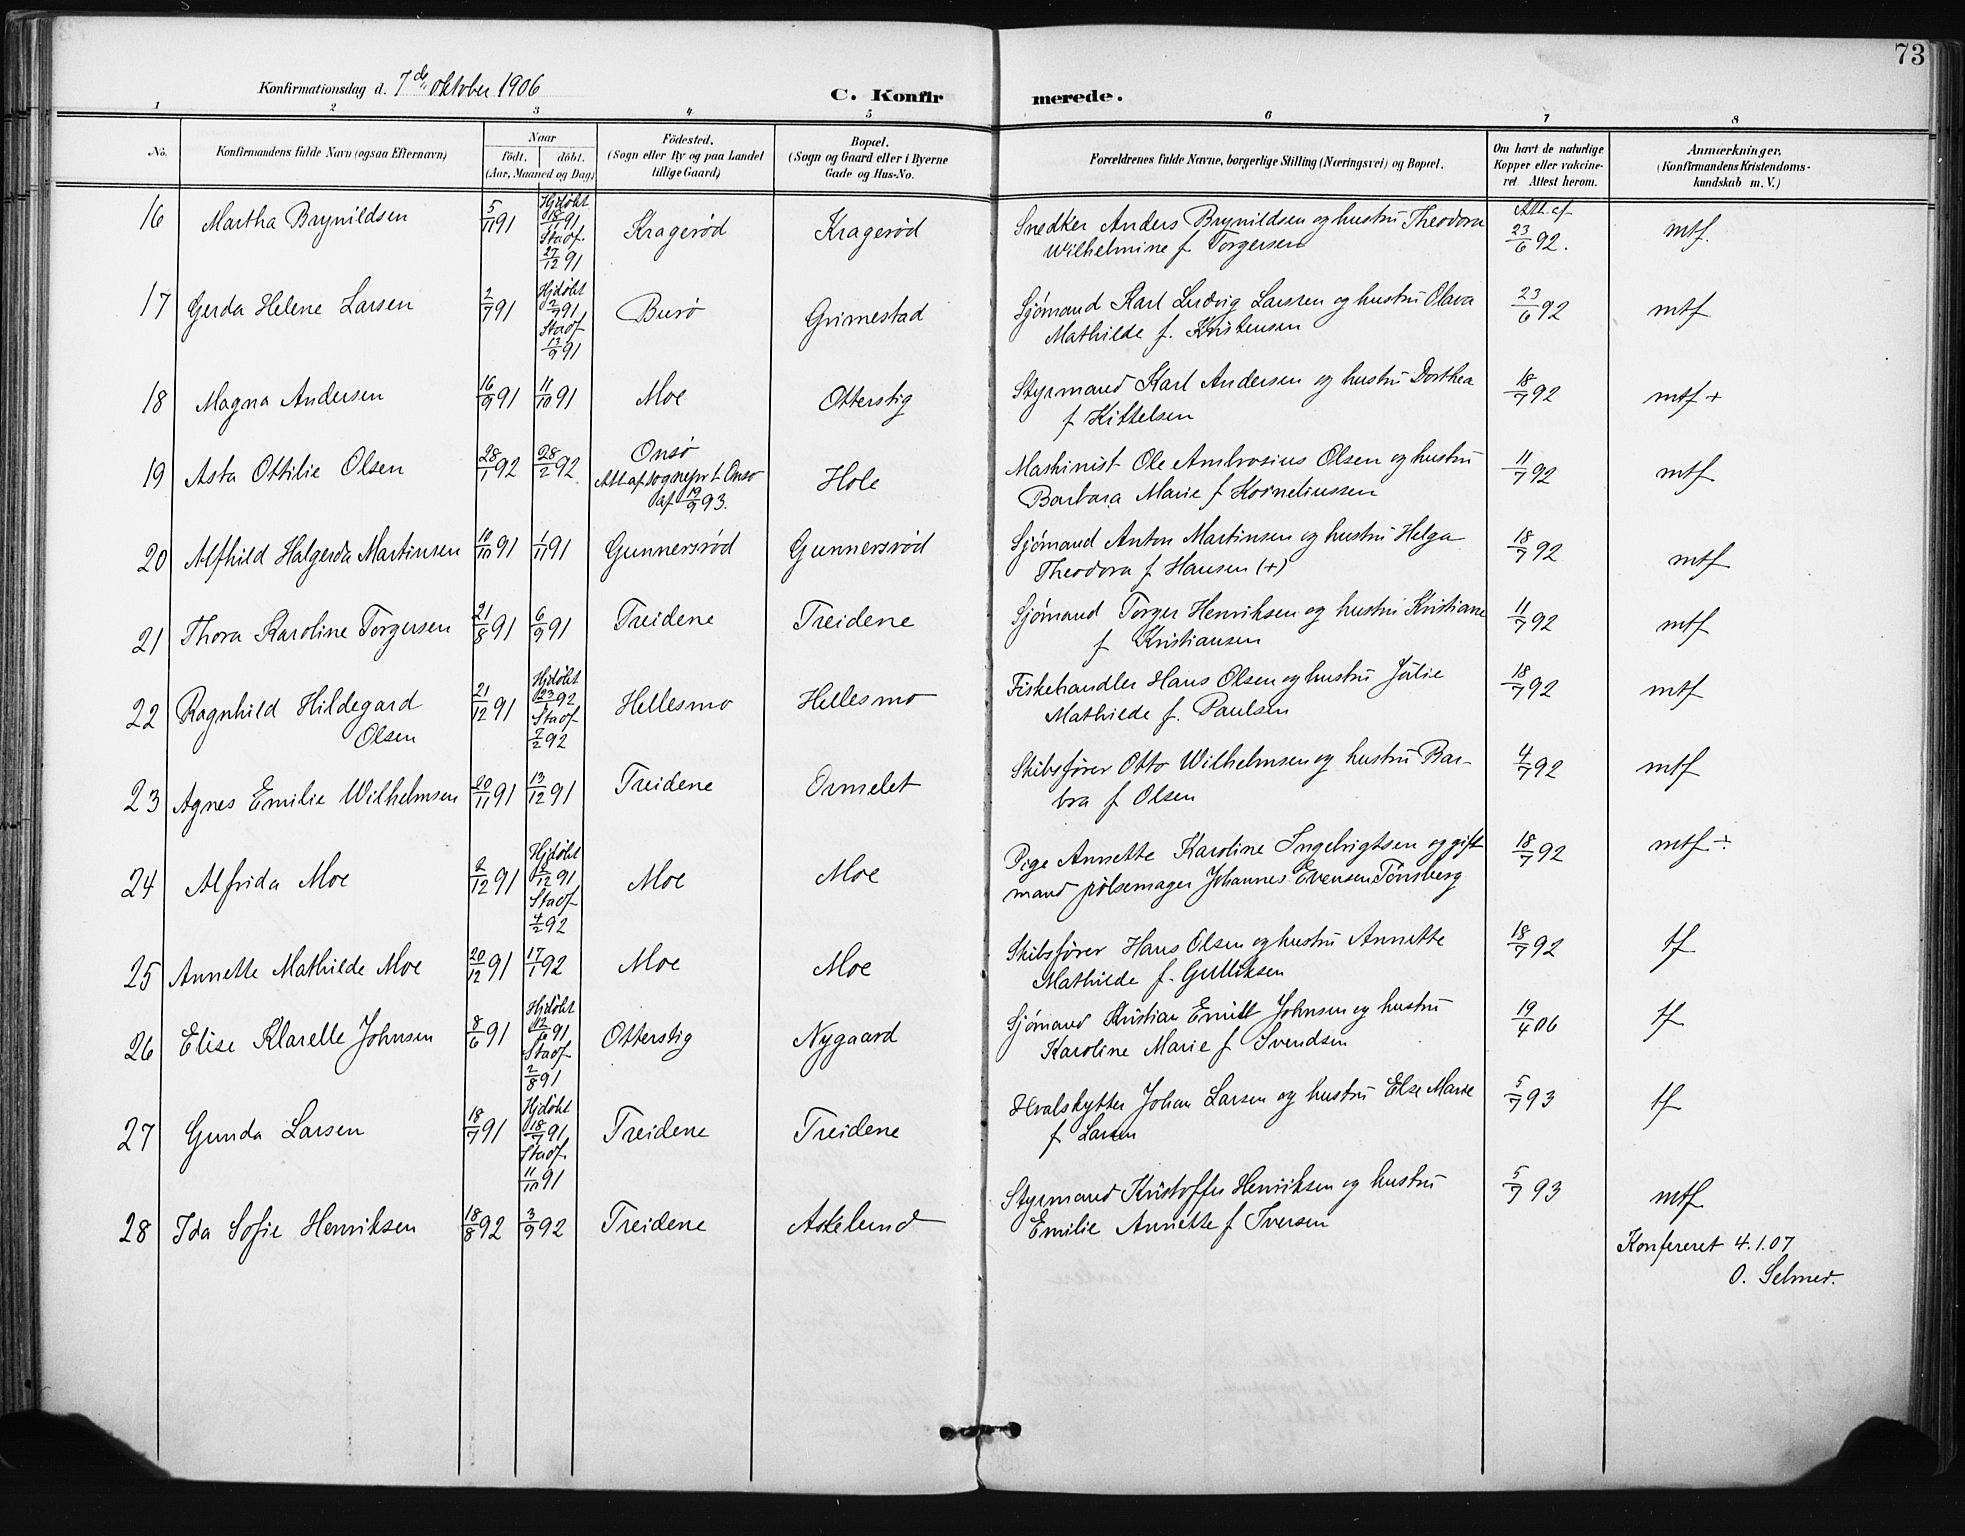 73
Konfirmationsdag d. 7de oktober 1906
C. Konfirmerede.
1 2 3 4 5 6 7 8
No.
Konfirmandens fulde Navn (ogsaa Efternavn)
Naar
födt. döbt.
(Aar, Maaned og Dag)
Födested.
(Sogn eller By og paa Landet
tillige Gaard)
Bopæl.
(Sogn og Gaard eller i Byerne
Gade og Hus-No.
Forældrenes fulde Navne, borgerlige Stilling (Næringsvei) og Bopæl.
Om havt de naturlige
Kopper eller vakcine-
ret Attest herom.
Anmærkninger,
(Konfirmandens Kristendoms-
kundskab m. V.)
16 Martha Brynildsen 5/11 91 Hjdøbt 18/11 91 Stadf. 27/12 91 Kragerød Kragerød Snedker Anders Brynildsen og hustru Theodora
Wilhelmine f Torgersen Att. af 23/6 92. mtf.
17 Gerda Helene Larsen 2/7 91 Hjdøbt 2/7 91 Stadf 13/9 91 Burø Grimestad Sjømand Karl Ludvig Larsen og hustru Olava
Mathilde f. Kristensen 23/6 92 mtf
18 Magna Andersen 16/9 91 11/10 91 Moe Otterstig Styrmand Karl Andersen og hustru Dorthea
f Kittelsen 18/7 92 mtf +
19 Asta Ottilie Olsen 28/1 92 28/2 92 Onsø
Att af sognepr t Onsø
af 19/9 93. Hole Maskinist Ole Ambrosius Olsen og hustru
Barbara Marie f Korneliussen 11/7 92 mtf
20 Alfhild Halgerda Martinsen 10/10 91 1/11 91 Gunnersrød Gunnersrød Sjømand Anton Martinsen og hustru Helga
Theodora f Hansen (+) 18/7 92 mtf
21 Thora Karoline Torgersen 21/8 91 6/9 91 Treidene Treidene Sjømand Torger Henriksen og hustru Kristiane
f Kristiansen 11/7 92 mtf
22 Ragnhild Hildegard
Olsen 21/12 91 Hjdøbt 23/ 92 Stadf 7/2 92 Hellesmo Hellesmo Fiskehandler Hans Olsen og hustru Julie
Mathilde f. Paulsen 18/7 92 mtf
23 Agnes Emilie Wilhelmsen 20/11 91 13/12 91 Treidene Ormelet Skibsfører Otto Wilhelmsen og hustru Bar-
bra f Olsen 4/7 92 mtf
24 Alfrida Moe 2/12 91 Hjdøbt 2/12 91 Stadf 4/2 92 Moe Moe Pige Annette Karoline Ingebrigtsen og gift
mand pølsemager Johannes Evensen Tønsberg 18/7 92 mtf ÷
25 Annette Mathilde Moe 20/12 91 17/1 92 Moe Moe Skibsfører Hans Olsen og hustru Annette
Mathilde f. Gulliksen 18/7 92 tf
26 Elise Klarelle Johnsen 8/6 91 Hjdøbt 12/6 91 Stadf 2/8 91 Otterstig Nygaard Sjømand Kristian Emil Johnsen og hustru
Karoline Marie f Svendsen 19/4 06 tf
27 Gunda Larsen 18/7 91 Hjdøbt 18/7 91 Stadf. 11/10 91 Treidene Treidene Hvalskytter Johan Larsen og hustru Else Marie
f Larsen 5/7 93 tf
28 Ida Sofie Henriksen 18/8 92 3/9 92 Treidene Askelund Styrmand Kristoffer Henriksen og hustru
Emilie Annette f Iversen 5/7 93 mtf
Konfereret 4.1.07
O. Selmer.